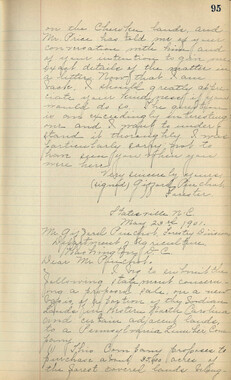 95
on the Cherokee lands, and
Mr Price has told me of your
conversation with him and
of your intention to give me
exact details of the matter in
a letter. Now that I am
back, I should greatly appre-
ciate your kindness, if you
would do so. The question
is an exceedingly interesting
one and I want to under-
stand it thoroughly. I was
particularly sorry not to
have seen you when you
were here.
Very sincerely yours,
(signed) Gifford Pinchot
Forester
Statesville N.C.
May 23rd 1901.
Mr Gifford Pinchot, Forestry Division
Department of Agriculture
Washington, D.C.
Dear Mr Pinchot:
I beg to submit the
following statement concern-
ing a proposed sale, on a new
basis, of a portion of the Indian
lands in Western North Carolina
and certain adjacent lands
to a Pennsylvania Lumber Com-
pany.
This Company proposes to
purchase about acres of
the forest covered lands belong-